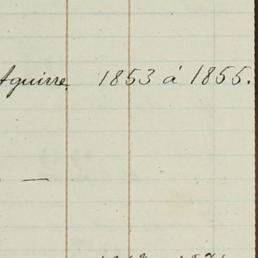 Aguirre 1853 á 1855.
—